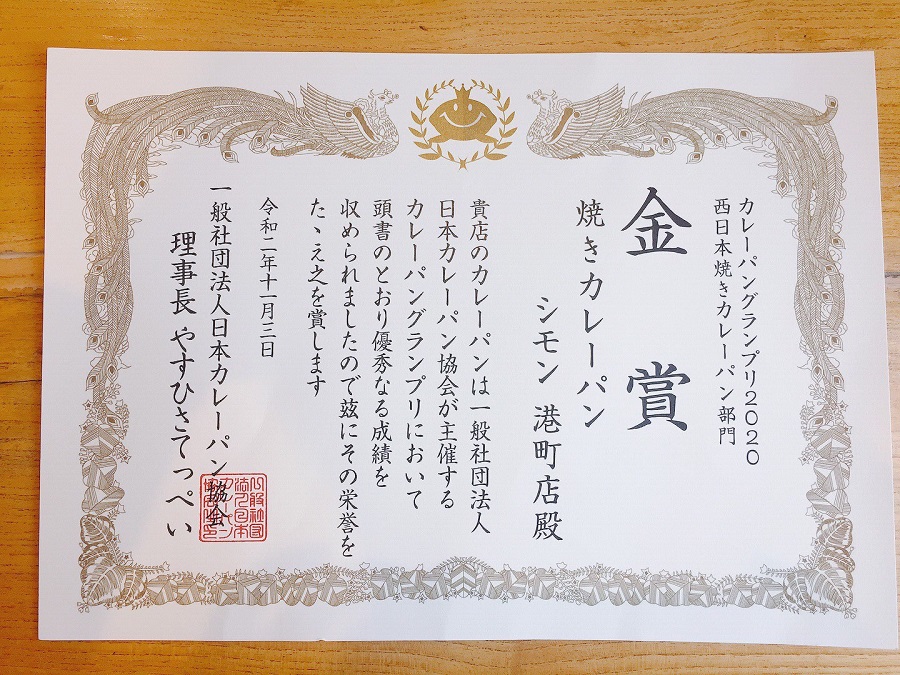 カレーパングランプリ2020
西日本焼きカレーパン部門
金賞
焼きカレーパン
シモン 港町店殿
貴店のカレーパンは一般社団法人
日本カレーパン協会が主催する
カレーパングランプリにおいて
頭書のとおり優秀なる成績を
収められましたので茲にその栄誉を
たゝえ之を賞します
令和二年十一月三日
一般社団法人日本カレーパン協会
理事長 やすひさてっぺい